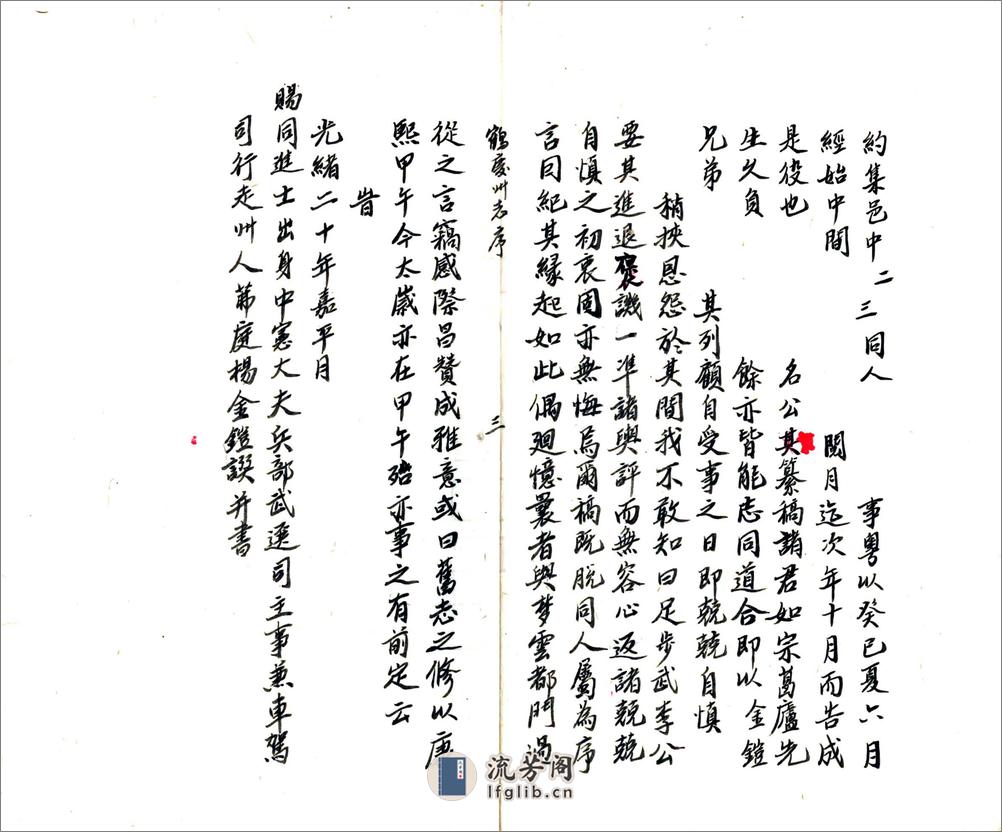 約集邑中二三同人　事粤以癸巳夏六月
經始中間　閱月迄次年十月而告成
是役也　名公其纂稿諸君如宗葛廬先
生久負　餘亦皆能志同道合即以金鎧
兄弟　其列顧自受事之日即兢兢自慎
稍挾恩怨於其間我不敢知曰足步武李公
要其進退褒譏一準諸輿評而無容心返諸兢兢
自慎之初衷固亦無悔焉爾稿既脫同人屬為序
言囙紀其緣起如此偶迴憶曩者與梦雲都門過
鶴慶州志序　三
從之言竊感際昌贊成雅意或曰舊志之修以康
熙甲午今太歲亦在甲午殆亦事之有前定云
旹
光緒二十年嘉平月
賜同進士出身中憲大夫兵部武選司主事兼車駕
司行走州人茀庭楊金鎧譔并書
流芳阁
lfglib.cn